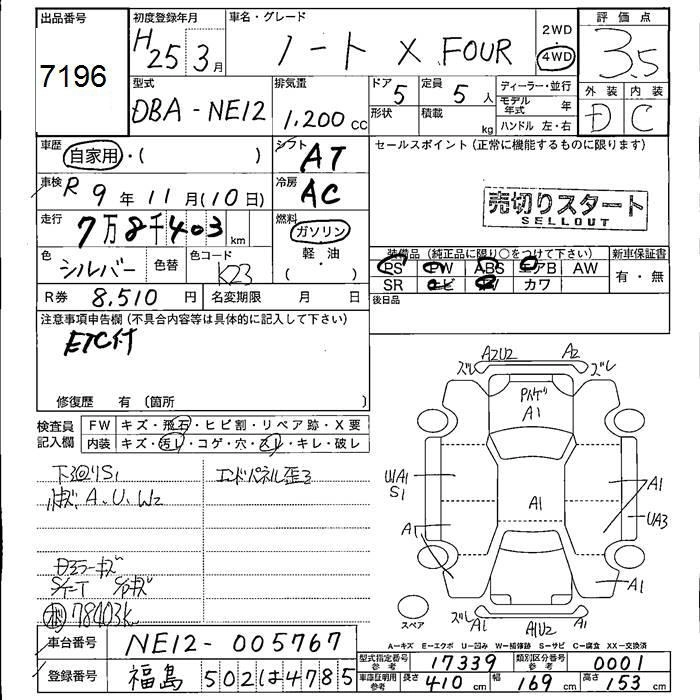 出品番号
7196
初度登録年月
H25 3月
車名・グレード
ノート X FOUR
2WD
4WD
評価点
3.5
型式
DBA-NE12
排気量
1,200cc
ドア 5
形状
定員 5人
積載 kg
ディーラー・並行
モデル年式 年
ハンドル 左・右
外装 内装
D C
車歴
自家用・( )
シフト
AT
セールスポイント(正常に機能するものに限ります)
車検
R9年11月(10日)
冷房
AC
売切りスタート
SELLOUT
走行
7万8千403km
燃料
ガソリン
(軽・油)
色
シルバー
色替
色コード
K23
装備品(純正品に限り○をつけて下さい)
新車保証書
PS PW ABS エアB AW
有・無
SR ナビ カワ
後日品
R券 8,510円
名変期限 月 日
注意事項申告欄(不具合内容等は具体的に記入して下さい)
ETC付
修復歴 有〔箇所 〕
検査員記入欄
FW キズ・飛石・ヒビ割・リペア跡・X要
内装 キズ・汚レ・コゲ・穴・スレ・キレ・破レ
下廻りS1
小キズ、A、U、W2
エンドパネル歪ミ
78403K
ズレ A2U2 A2 ズレ
A1
U1A1
S1
A1
A1
A1
UA3
A1
スペア
ズレ A1 A1U2 A1
A-キズ E-エクボ U-凹ミ W-補修跡 S-サビ C-腐食 XX-交換済
車台番号
NE12-005767
登録番号
福島 502 は 4785
型式指定番号参考 17339
類別区分番号参考 0001
車庫証明用参考 長さ 410cm 幅 169cm 高さ 153cm